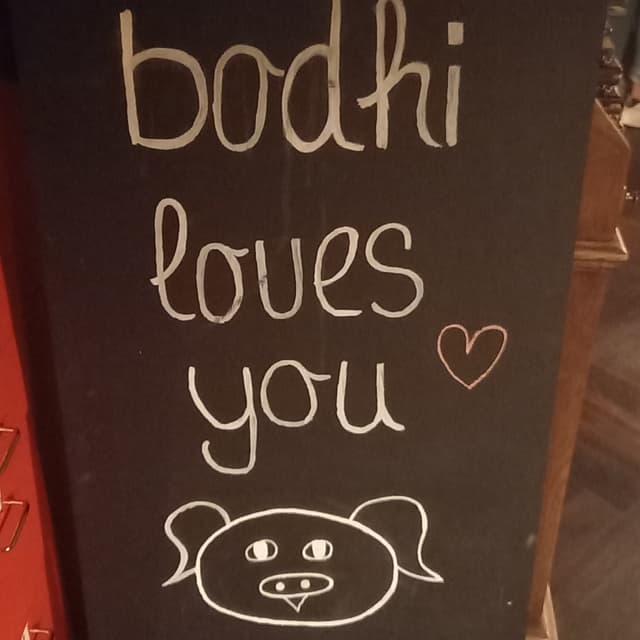 bodhi
loves
you